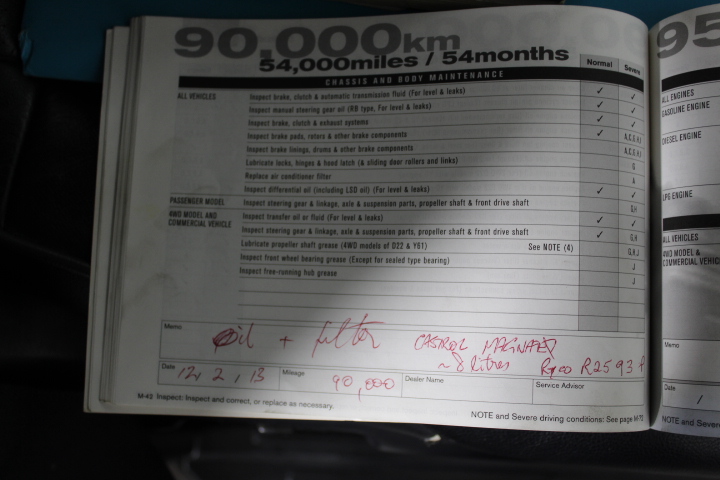 90,000km
54,000miles / 54months
CHASSIS AND BODY MAINTENANCE
Normal Severe
ALL VEHICLES
Inspect brake, clutch & automatic transmission fluid (For level & leaks) ✓ ✓
Inspect manual steering gear oil (RB type, For level & leaks) ✓ ✓
Inspect brake, clutch & exhaust systems ✓ ✓
Inspect brake pads, rotors & other brake components ✓
Inspect brake linings, drums & other brake components
Lubricate locks, hinges & hood latch (& sliding door rollers and links) G
Replace air conditioner filter A
Inspect differential oil (including LSD oil) (For level & leaks) ✓ ✓
PASSENGER MODEL Inspect steering gear & linkage, axle & suspension parts, propeller shaft & front drive shaft G,H
4WD MODEL AND
COMMERCIAL VEHICLE
Inspect transfer oil or fluid (For level & leaks) ✓ ✓
Inspect steering gear & linkage, axle & suspension parts, propeller shaft & front drive shaft ✓ G,H
Lubricate propeller shaft grease (4WD models of D22 & Y61) See NOTE (4) G,H,J
Inspect front wheel bearing grease (Except for sealed type bearing) J
Inspect free-running hub grease J
Memo
Oil + filter CASTROL MAGNATEC
~8 litres Ryco R2593A
Date 12, 2, 13 Mileage 90,000 Dealer Name Service Advisor
M-42 Inspect: Inspect and correct, or replace as necessary.
NOTE and Severe driving conditions: See page M-70
95
ALL ENGINES
GASOLINE ENGINE
DIESEL ENGINE
LPG ENGINE
ALL VEHICLES
4WD MODEL &
COMMERCIAL VEHIC
Memo
Date /
NOTE and Sever